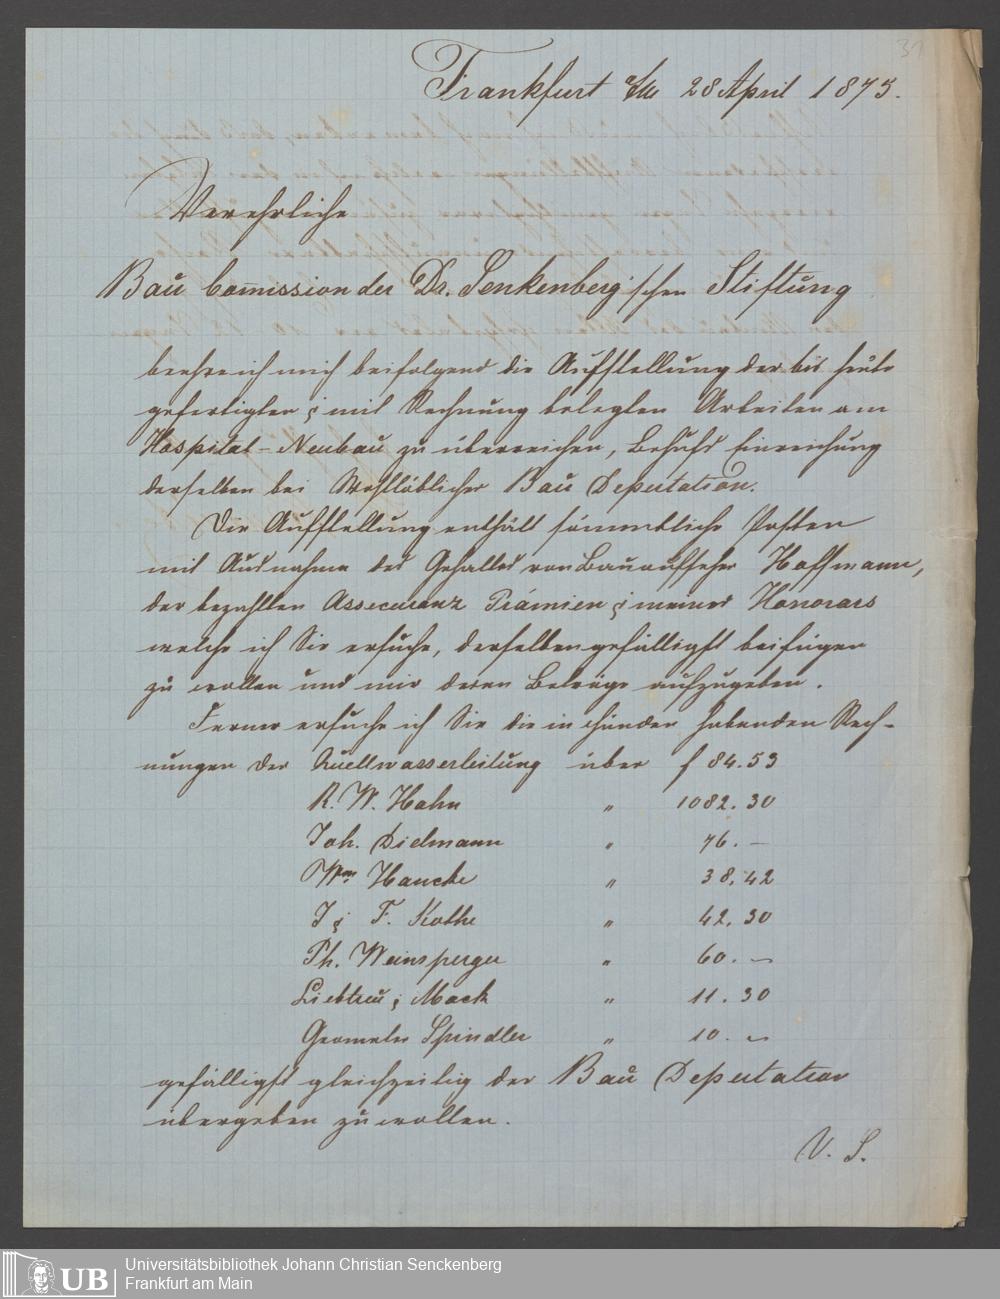 31
Frankfurt a/M 28 April 1875.
Verehrliche
Bau Com̅ission der Dr. Senkenberg'schen Stiftung
beehre ich mich beifolgend die Aufstellung der bis heute
gefertigten & mit Rechnung belegten Arbeiten am
Hospital-Neubau zu überreichen, behufs Einreichung
derselben bei Wohllöblicher Bau Deputation.
Die Aufstellung enthält sämmtliche Posten
mit Ausnahme des Gehaltes von Bauaufseher Hoffmann,
der bezahlten Assecuranz Prämien & meines Honorars
welche ich Sie ersuche, derselben gefälligst beifügen
zu wollen und mir deren Beträge aufzugeben.
Ferner ersuche ich Sie die in Händen habenden Rech-
nungen der Quellwasserleitung über f 84.53
R. W. Hahn " 1082.30
Joh. Dielmann " 76.–
Wm. Hancke " 38.42
J & F. Kothe " 42.30
Ph. Weinsperger " 60.–
Liebtreu & Mack " 11.30
Geometer Spindler " 10.–
gefälligst gleichzeitig der Bau Deputation
übergeben zu wollen.
V. S.
UB
Universitätsbibliothek Johann Christian Senckenberg
Frankfurt am Main